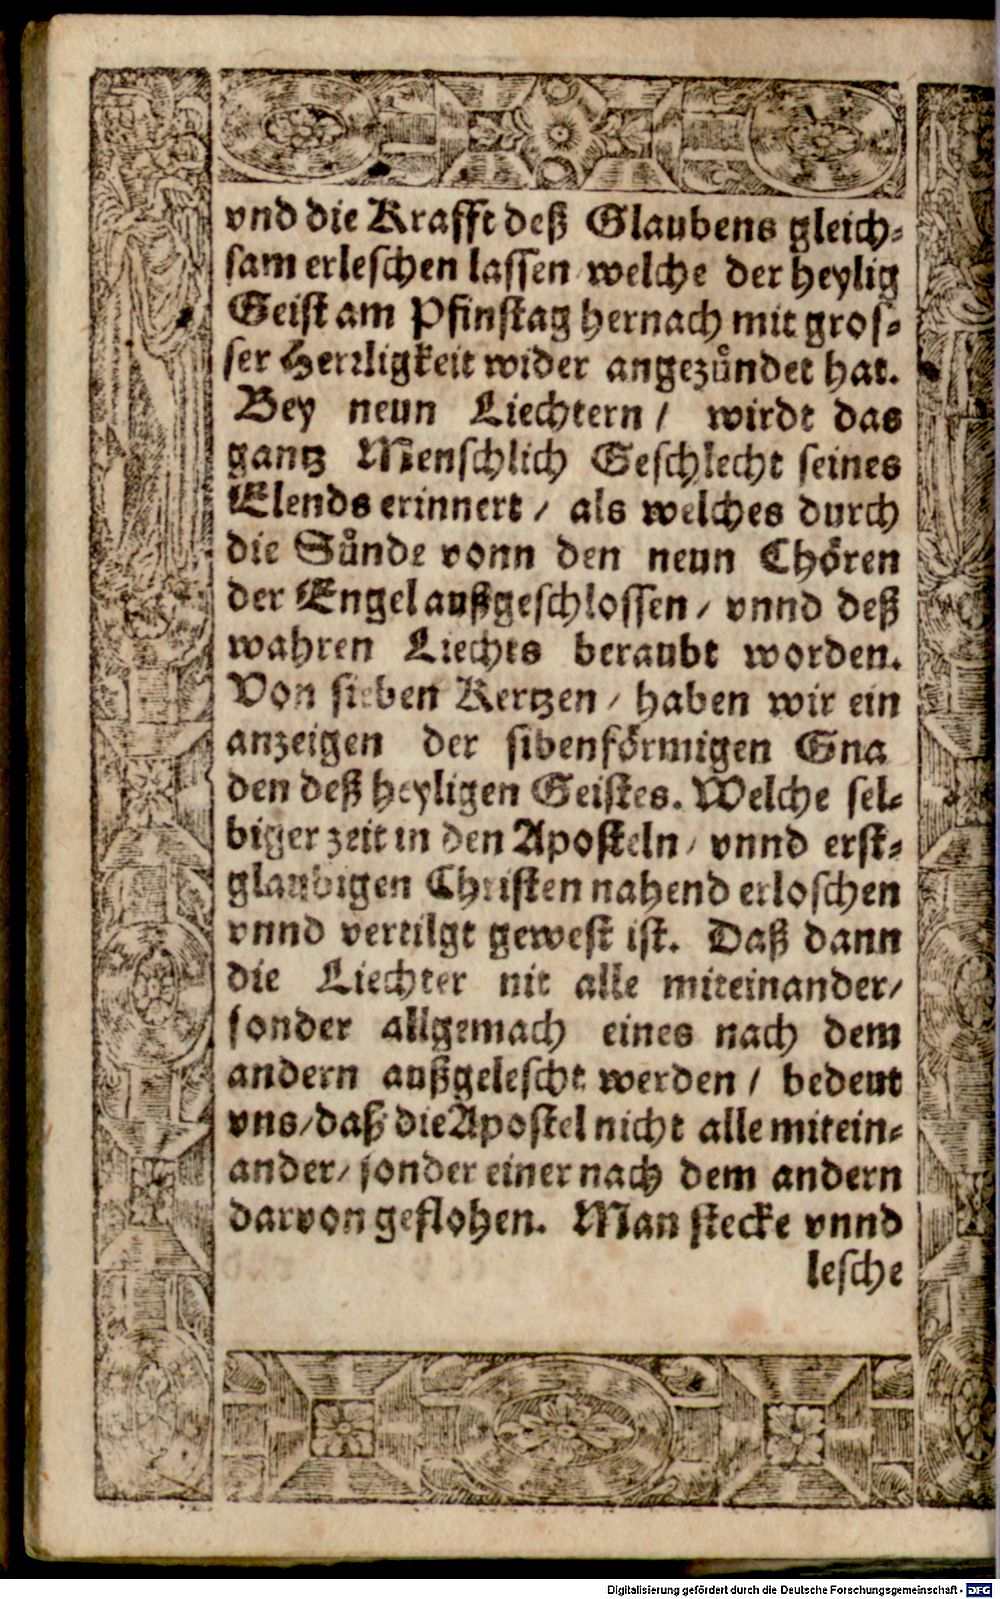 vnd die Krafft deß Glaubens gleich-
sam erleschen lassen welche der heylig
Geist am Pfinstag hernach mit gros-
ser Herrligkeit wider angezůndet hat.
Bey neun Liechtern / wirdt das
gantz Menschlich Geschlecht seines
Elends erinnert / als welches durch
die Sůnde vonn den neun Chören
der Engel außgeschlossen / vnnd deß
wahren Liechts beraubt worden.
Von sieben Kertzen / haben wir ein
anzeigen der sibenförmigen Gna
den deß heyligen Geistes. Welche sel-
biger zeit in den Aposteln / vnnd erst-
glaubigen Christen nahend erloschen
vnnd vertilgt gewest ist. Daß dann
die Liechter nit alle miteinander /
sonder allgemach eines nach dem
andern außgelescht werden / bedeut
vns / daß die Apostel nicht alle mitein-
ander / sonder einer nach dem andern
darvon geflohen. Man stecke vnnd
lesche
Digitalisierung gefördert durch die Deutsche Forschungsgemeinschaft - DFG